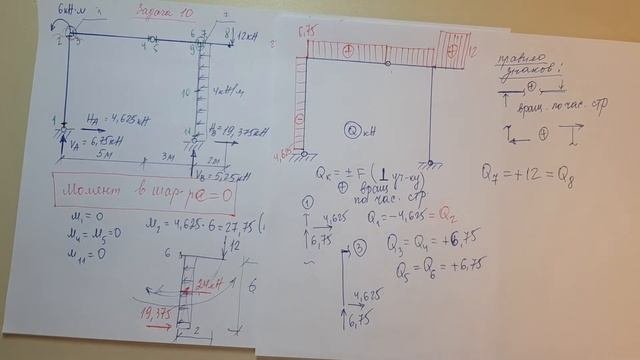 Задача 10
6 кН·м
2 3
4 5
6 7
9
8
12 кН
10
4 кН/м
1
11
H_A = 4,625 кН
H_B = 19,375 кН
V_A = 6,75 кН
V_B = 5,25 кН
5 м
3 м
2 м
Момент в шар-ре = 0
M₁ = 0
M₄ = M₅ = 0
M₁₁ = 0
M₂ = 4,625 · 6 = 27,75
12
6
24 кН
6
19,375
2
6,75
+
+
12
-
4,625
Q кН
Q_K = ± F (⊥ уч-ку)
+ вращ. по час. стр
1
4,625
6,75
Q₁ = -4,625 = Q₂
3
Q₃ = Q₄ = +6,75
Q₅ = Q₆ = +6,75
4,625
6,75
правило знаков!
+
вращ. по час. стр
+
Q₇ = +12 = Q₈